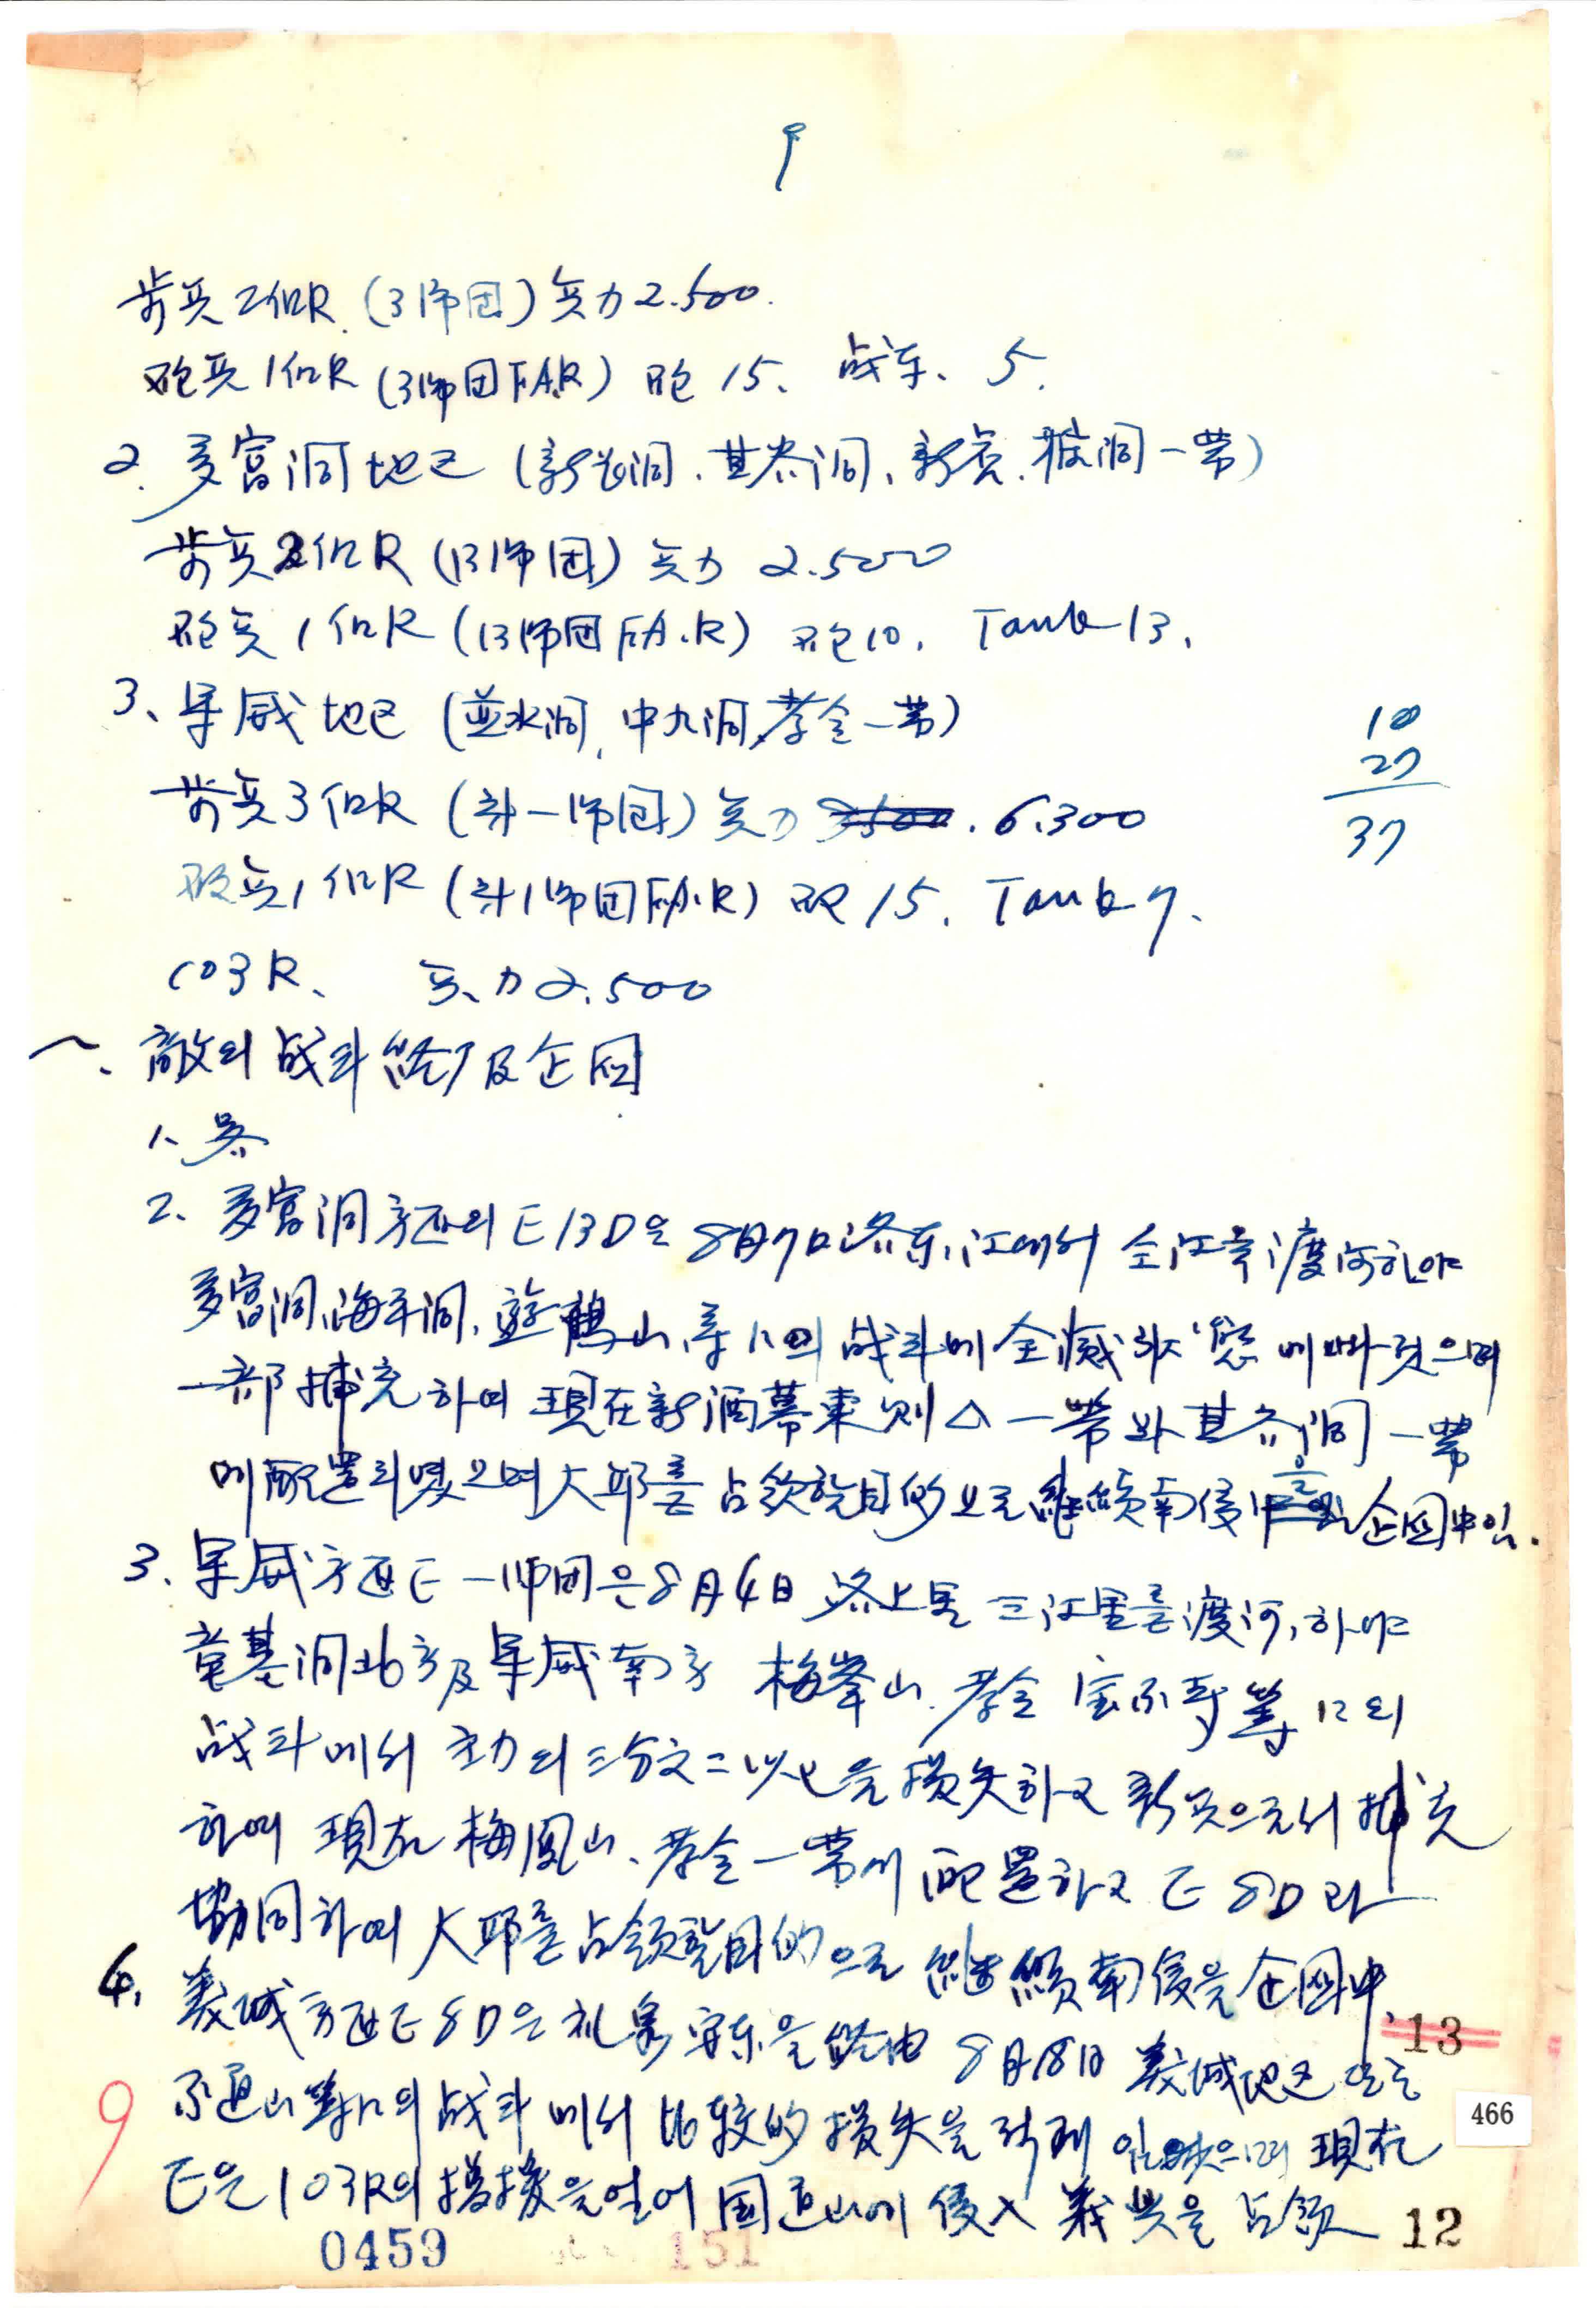 9
步兵 2個R. (3師団) 兵力 2.500.
砲兵 1個R (3師団 F.A.R) 砲 15. 战车. 5.
2. 多富洞 地区 (新 洞. 其 洞. 新 . 洞一帶)
步兵 2個R (13師団) 兵力 2.500
砲兵 1個R (13師団 F.A.R) 砲10. Tank 13.
3. 軍威 地区 (並水洞, 中九洞, 孝令一帶)
10
27
37
步兵 3個R ( 一師団) 兵力 . 6.300
砲兵 1個R ( 1師団 F.A.R) 砲 15. Tank 7.
103R. 兵力 2.500
一. 敵의 战斗 經 及 企図
1. 畧
2. 多富洞 方面의 E 13D은 8月7日 洛东江에서 江을 渡河하야
多富洞, 海平洞, 遊鶴山, 等 의 战斗에 全滅狀態에 빠졋으며
一部 捕充하여 現在 新酒幕 東側 △ 一帶와 其 洞 一帶
에 配置되 엿으며 大邱를 占領 目的으로 継續 南侵 을 企図中임.
3. 軍威 方面 E 一師団은 8月4日 洛上里 三江里를 渡河, 하야
基洞 北方 及 軍威 南方 梅峯山, 孝令 等 의
战斗에서 主力의 三分之二 以上을 損失하고 新兵으로서 捕充
하여 現在 梅鳳山, 孝令 一帶에 配置하고 E 8D와
協同하여 大邱를 占領 目的으로 継續 南侵을 企図中.
4. 義城 方面 E 8D은 礼泉 安东을 経由 8月18日 義城 地区
山 等 의 战斗에서 比較的 損失을 現在
E은 103R의 增援을 얻어 国 山에 侵入 義興을 占領
13
466
9
0459
151
12